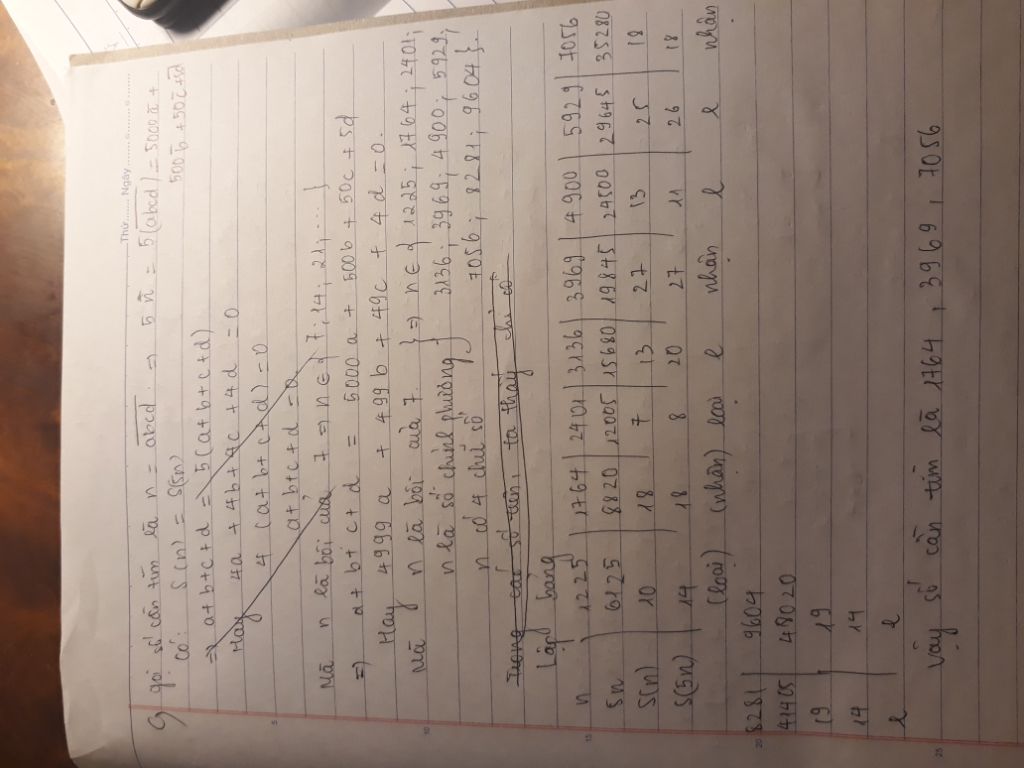 Thứ......... Ngày.........................
gọi số cần tìm là n = abcd ⇒ 5n = 5(abcd) = 5000a +
500b + 50c + 5d
Có: S(n) = S(5n)
⇒ a+b+c+d = 5(a+b+c+d)
Hay 4a + 4b + 4c + 4d = 0
4 (a+b+c+d) = 0
a+b+c+d = 0
Mà n là bội của 7 ⇒ n ∈ { 7; 14; 21; ... }
⇒ a + b + c + d = 5000a + 500b + 50c + 5d
Hay 4999a + 499b + 49c + 4d = 0.
Mà n là bội của 7 } ⇒ n ∈ { 1225; 1764; 2401;
n là số chính phương } 3136; 3969; 4900; 5929;
n có 4 chữ số 7056; 8281; 9604 }.
Trong các số trên, ta thấy chỉ có
Lập bảng
n | 1225 | 1764 | 2401 | 3136 | 3969 | 4900 | 5929 | 7056
5n | 6125 | 8820 | 12005 | 15680 | 19845 | 24500 | 29645 | 35280
S(n) | 10 | 18 | 7 | 13 | 27 | 13 | 25 | 18
S(5n) | 14 | 18 | 8 | 20 | 27 | 11 | 26 | 18
(loại) (nhận) loại l nhận l l nhận
8281 | 9604
41405 | 48020
19 | 19
14 | 14
l | l
Vậy số cần tìm là 1764, 3969, 7056
5
10
15
20
25